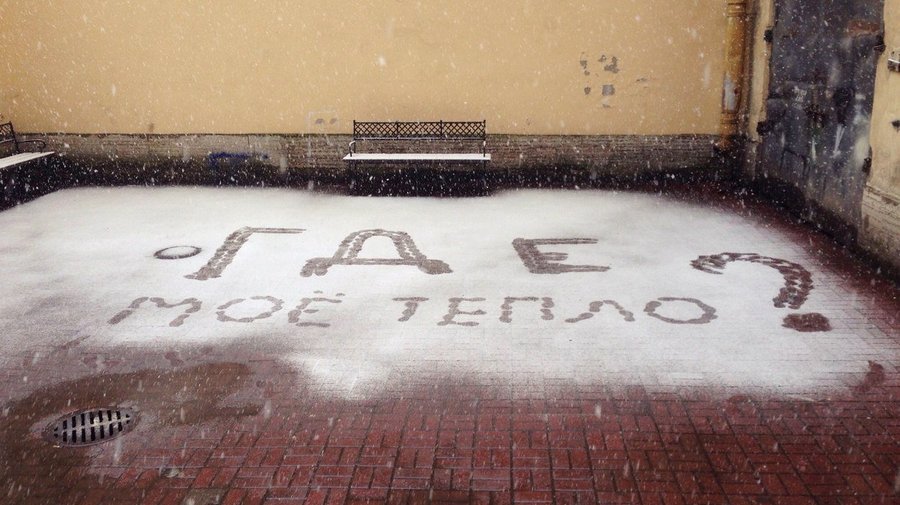 ГДЕ ?
МОЁ ТЕПЛО